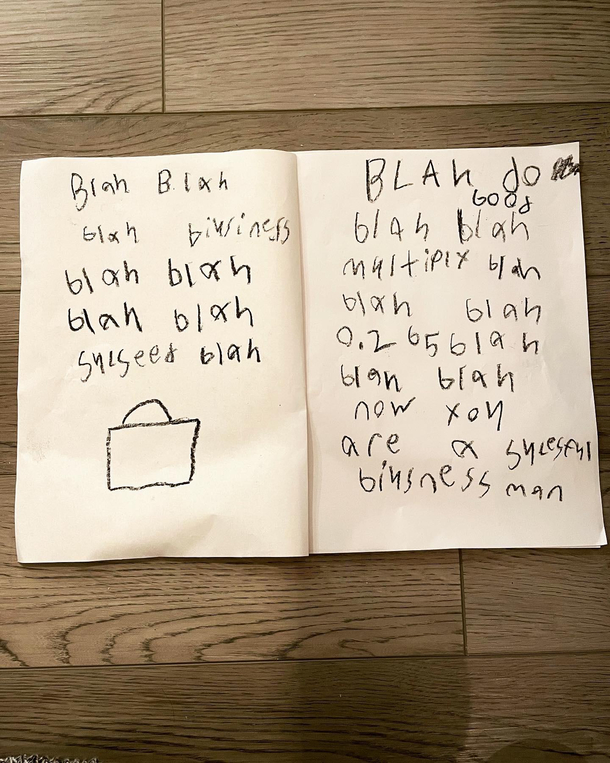 Blah Blah
blah biusiness
blah blah
blah blah
sucseed blah
BLAH do
good
blah blah
multiplx blah
blah blah
0.265 blah
blah blah
now you
are a sucesful
biusness man